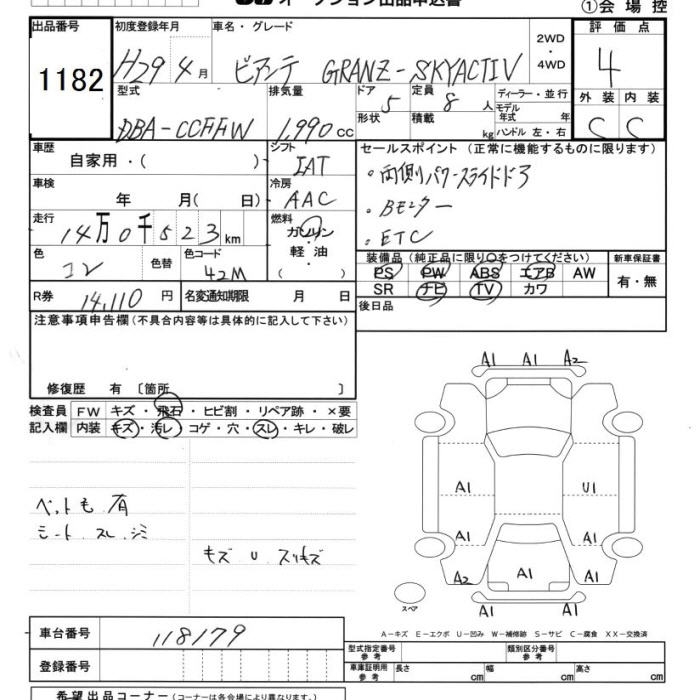 オークション出品申込書
①会場控
出品番号 初度登録年月 車名・グレード 2WD・4WD 評価点
1182 H29年4月 ビアンテ GRANZ-SKYACTIV 4
型式 排気量 ドア形状 5 定員 8人 積載 kg ディーラー・並行 モデル年式 年 ハンドル 左・右 外装 内装
DBA-CCFFW 1,990cc C C
車歴 自家用・( ) シフト IAT セールスポイント (正常に機能するものに限ります)
車検 年 月( 日) 冷房 AAC ・両側パワースライドドア
走行 14万0千523km 燃料 ガソリン・軽油 ( ) ・Bモニター
・ETC
色 コン 色替 色コード 42M
装備品 (純正品に限り○をつけてください) 新車保証書
PS PW ABS エアB AW 有・無
SR ナビ TV カワ
R券 14,110円 名変通知期限 月 日 後日品
注意事項申告欄(不具合内容等は具体的に記入して下さい)
修復歴 有 〔箇所 〕
検査員記入欄 FW キズ・飛石・ヒビ割・リペア跡・×要
内装 キズ・汚レ・コゲ・穴・スレ・キレ・破レ
ペット毛 有
シート スレ・シミ
キズ U スリキズ
A1 A1 A2
A1 U1
A1 A1
A2 A1 A1
A1 A1
スペア
A-キズ E-エクボ U-凹み W-補修跡 S-サビ C-腐食 XX-交換済
車台番号 118179
型式指定番号 参考 類別区分番号 参考
登録番号 車庫証明用 参考 長さ cm 幅 cm 高さ cm
希望出品コーナー (コーナーは各会場により異なります。)